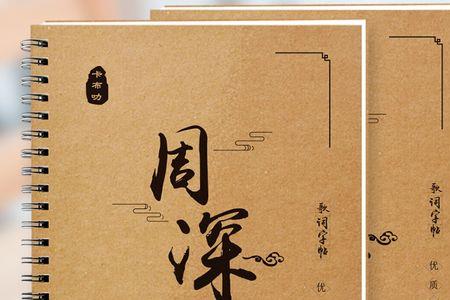 卡布叻
周深
歌词字帖
优
歌词字帖
优质